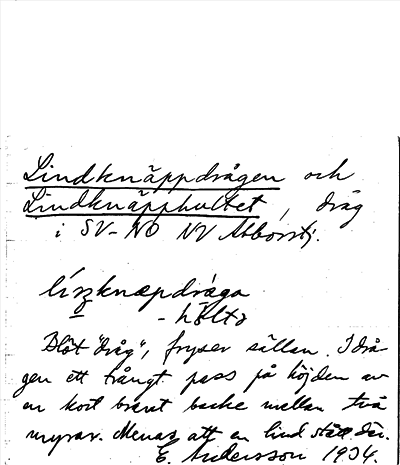 Lindknäppdrågen och
Lindknäpphultet, dråg
i SV-NO NV Abborrtj.
líŋknæpdråga
- hŏltə
Blöt "dråg", fryser sällan. I drå-
gen ett trångt pass på höjden av
en kort brant backe mellan två
myrar. Menar att en lind stått där.
E. Andersson 1934.